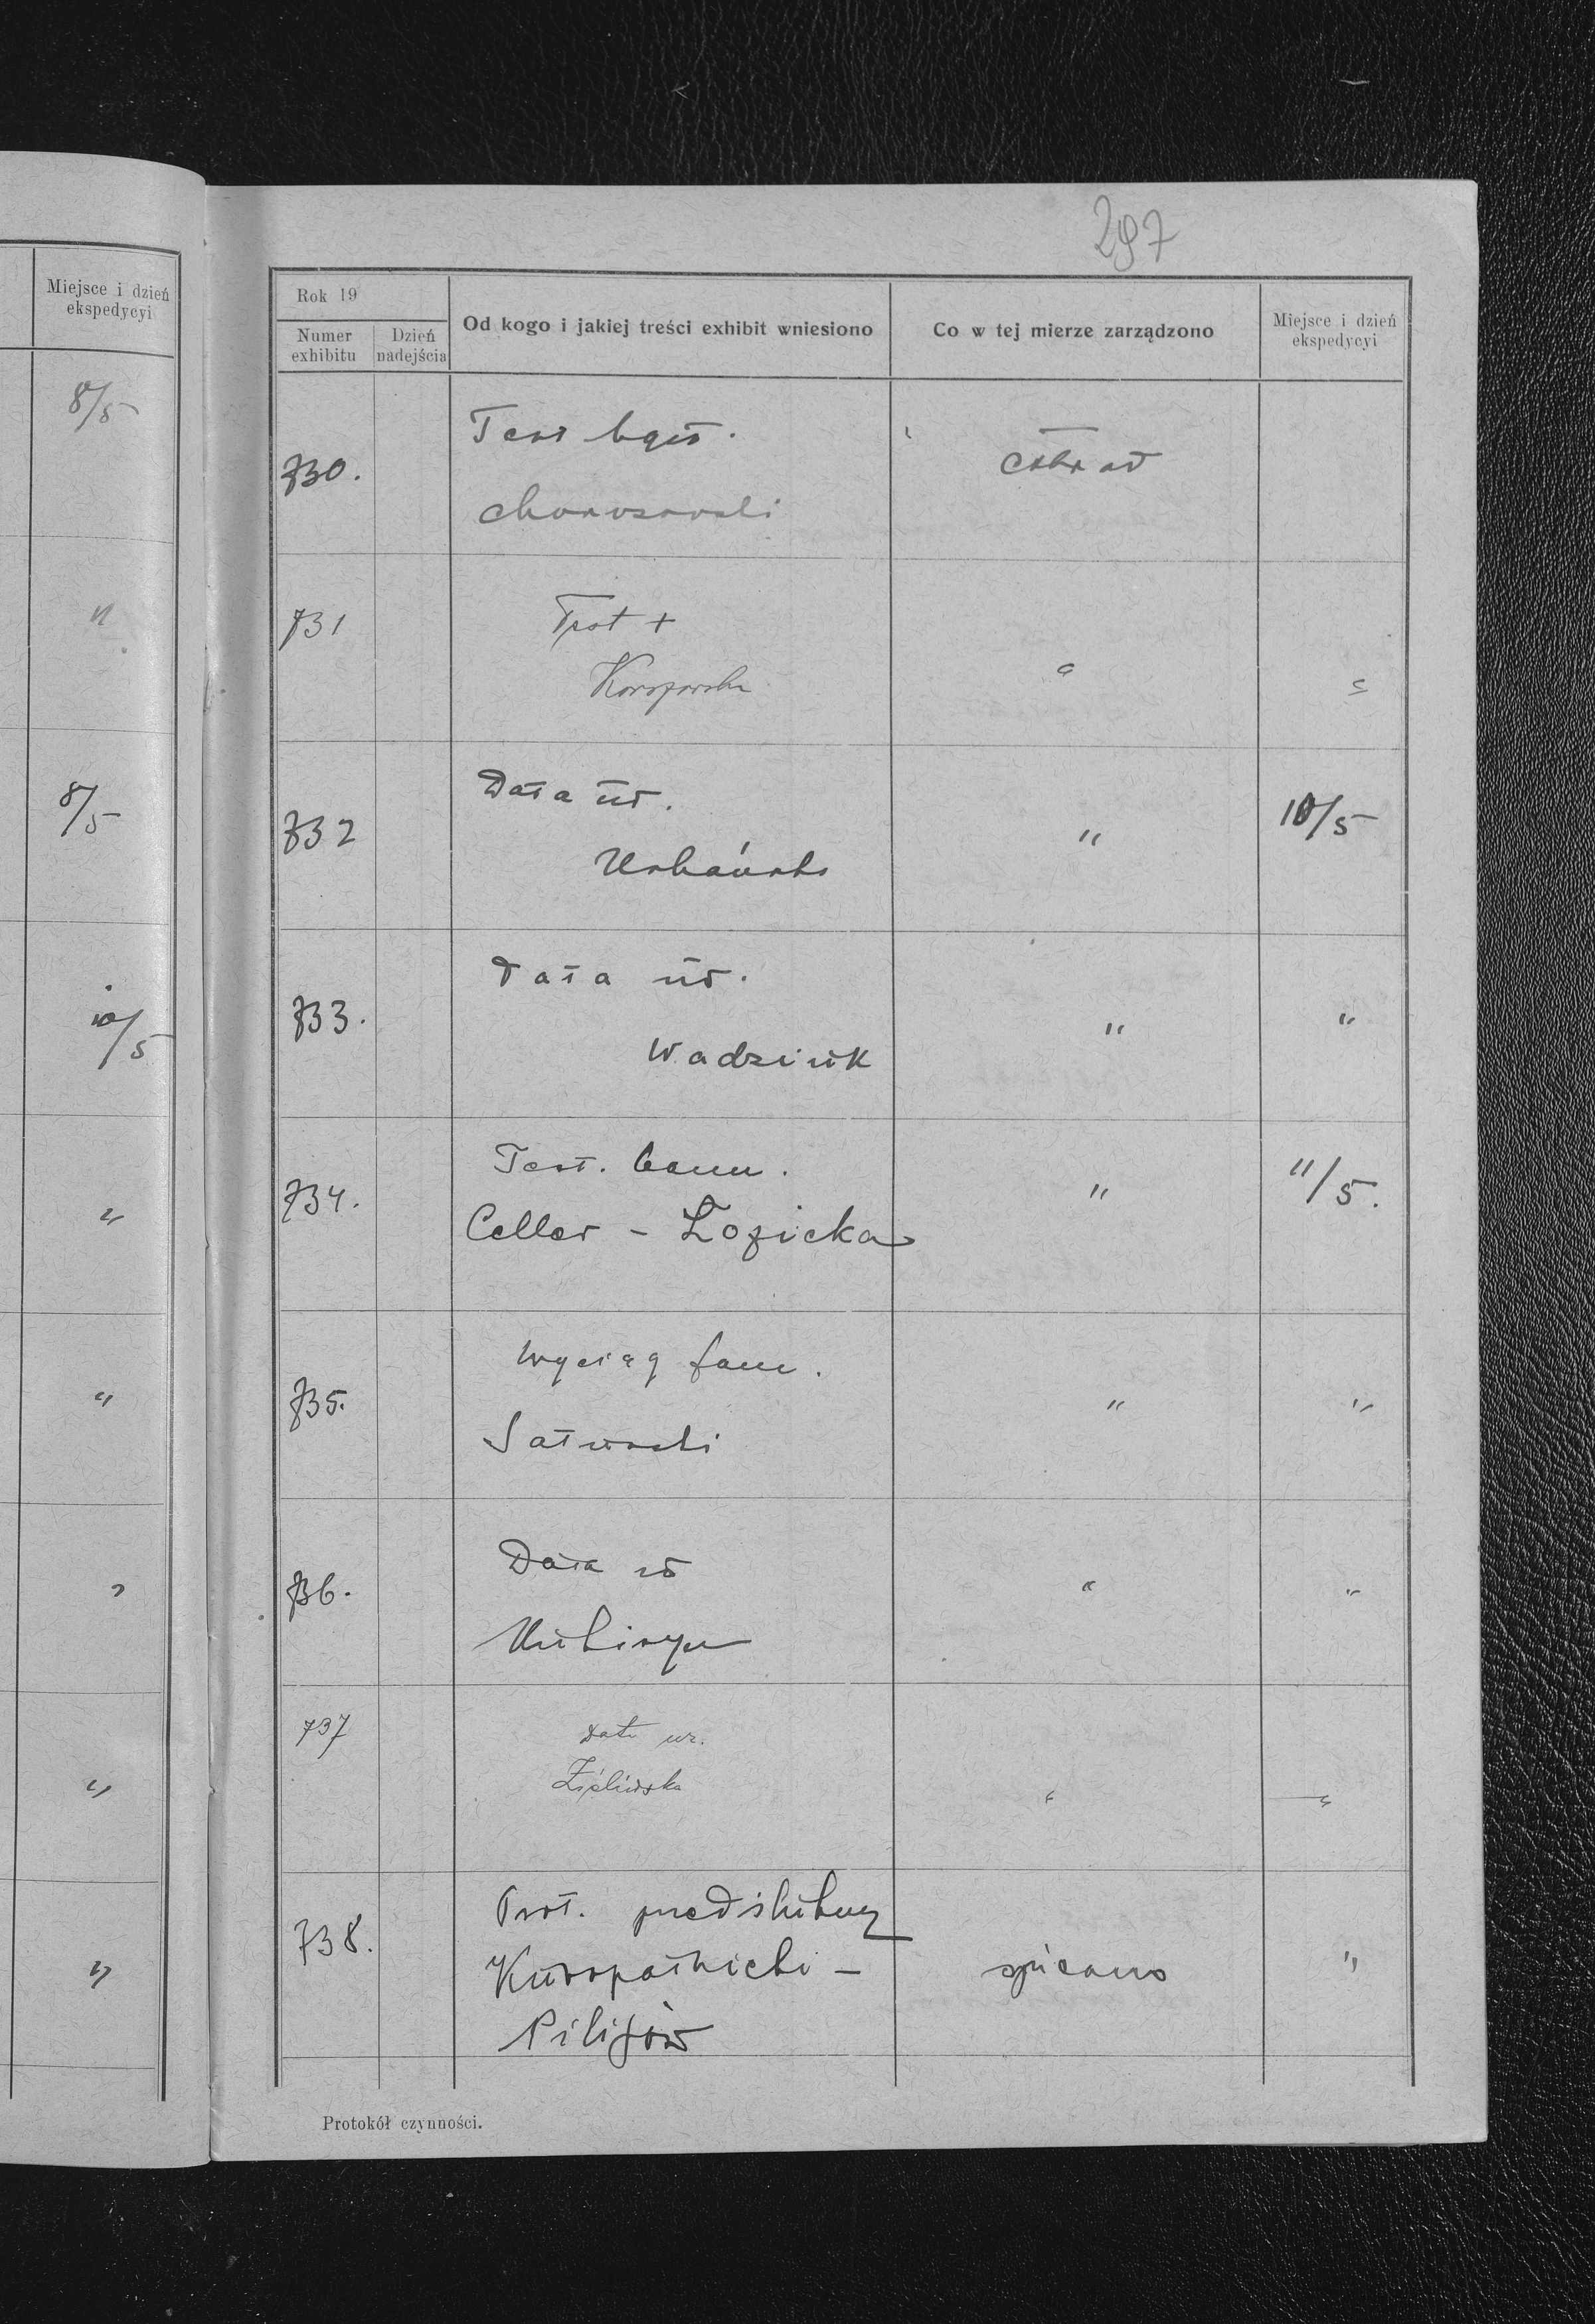 Miejsce i dzień
ekspedycyi
8/5
"
8/5
10/5
"
"
"
"
"
297
Rok 19
Numer
exhibitu
Dzień
nadejścia
Od kogo i jakiej treści exhibit wniesiono
Co w tej mierze zarządzono
Miejsce i dzień
ekspedycyi
730.
Test
731
"
"
732
Data ur.
"
10/5
733.
Data ur.
Wadziuk
"
"
734.
Test. bann.
Celler - Łozicka
"
11/5.
735.
Wyciąg fam.
"
"
736.
Data ur
"
"
737
Data ur.
Zielińska
"
"
738.
Prot. przedślubny
Kuropatnicki -
spisano
"
Protokół czynności.